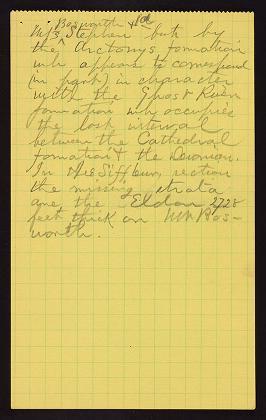 Bosworth &
Mts Stephen but by
the Arctomys formation
wh appears to correspond
(in part) in character
with the Ghost River
formation wh occupies
the lost interval
between the Cathedral
formation & the Devonian.
In the Siffleur section
the missing strata
are the Eldon 2728
feet thick on Mt Bos-
worth.